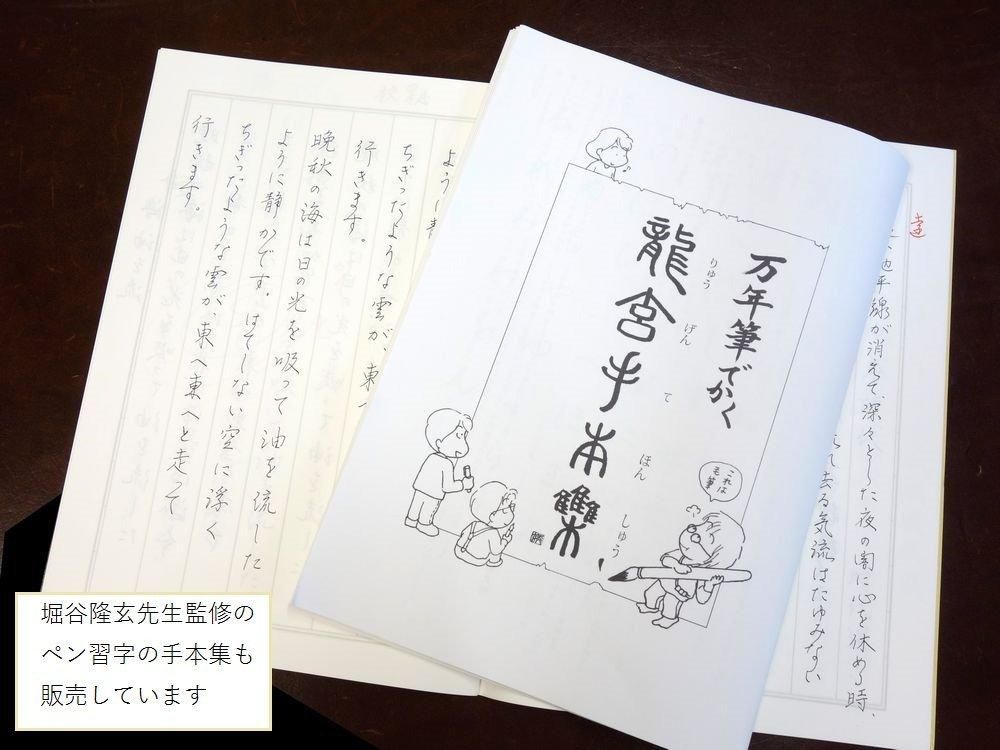 万年筆でかく
龍玄手本集
りゅう げん て ほん しゅう
これは
毛筆
地平線が消えて、深々とした夜の闇に心を休める時、
て去る気流はたゆみない
ように
ちぎったような雲が、東
行きます。
晩秋の海は日の光を吸って油を流した
ように静かです。はてしない空に浮く
ちぎったような雲が、東へ東へと走って
行きます。
堀谷隆玄先生監修の
ペン習字の手本集も
販売しています